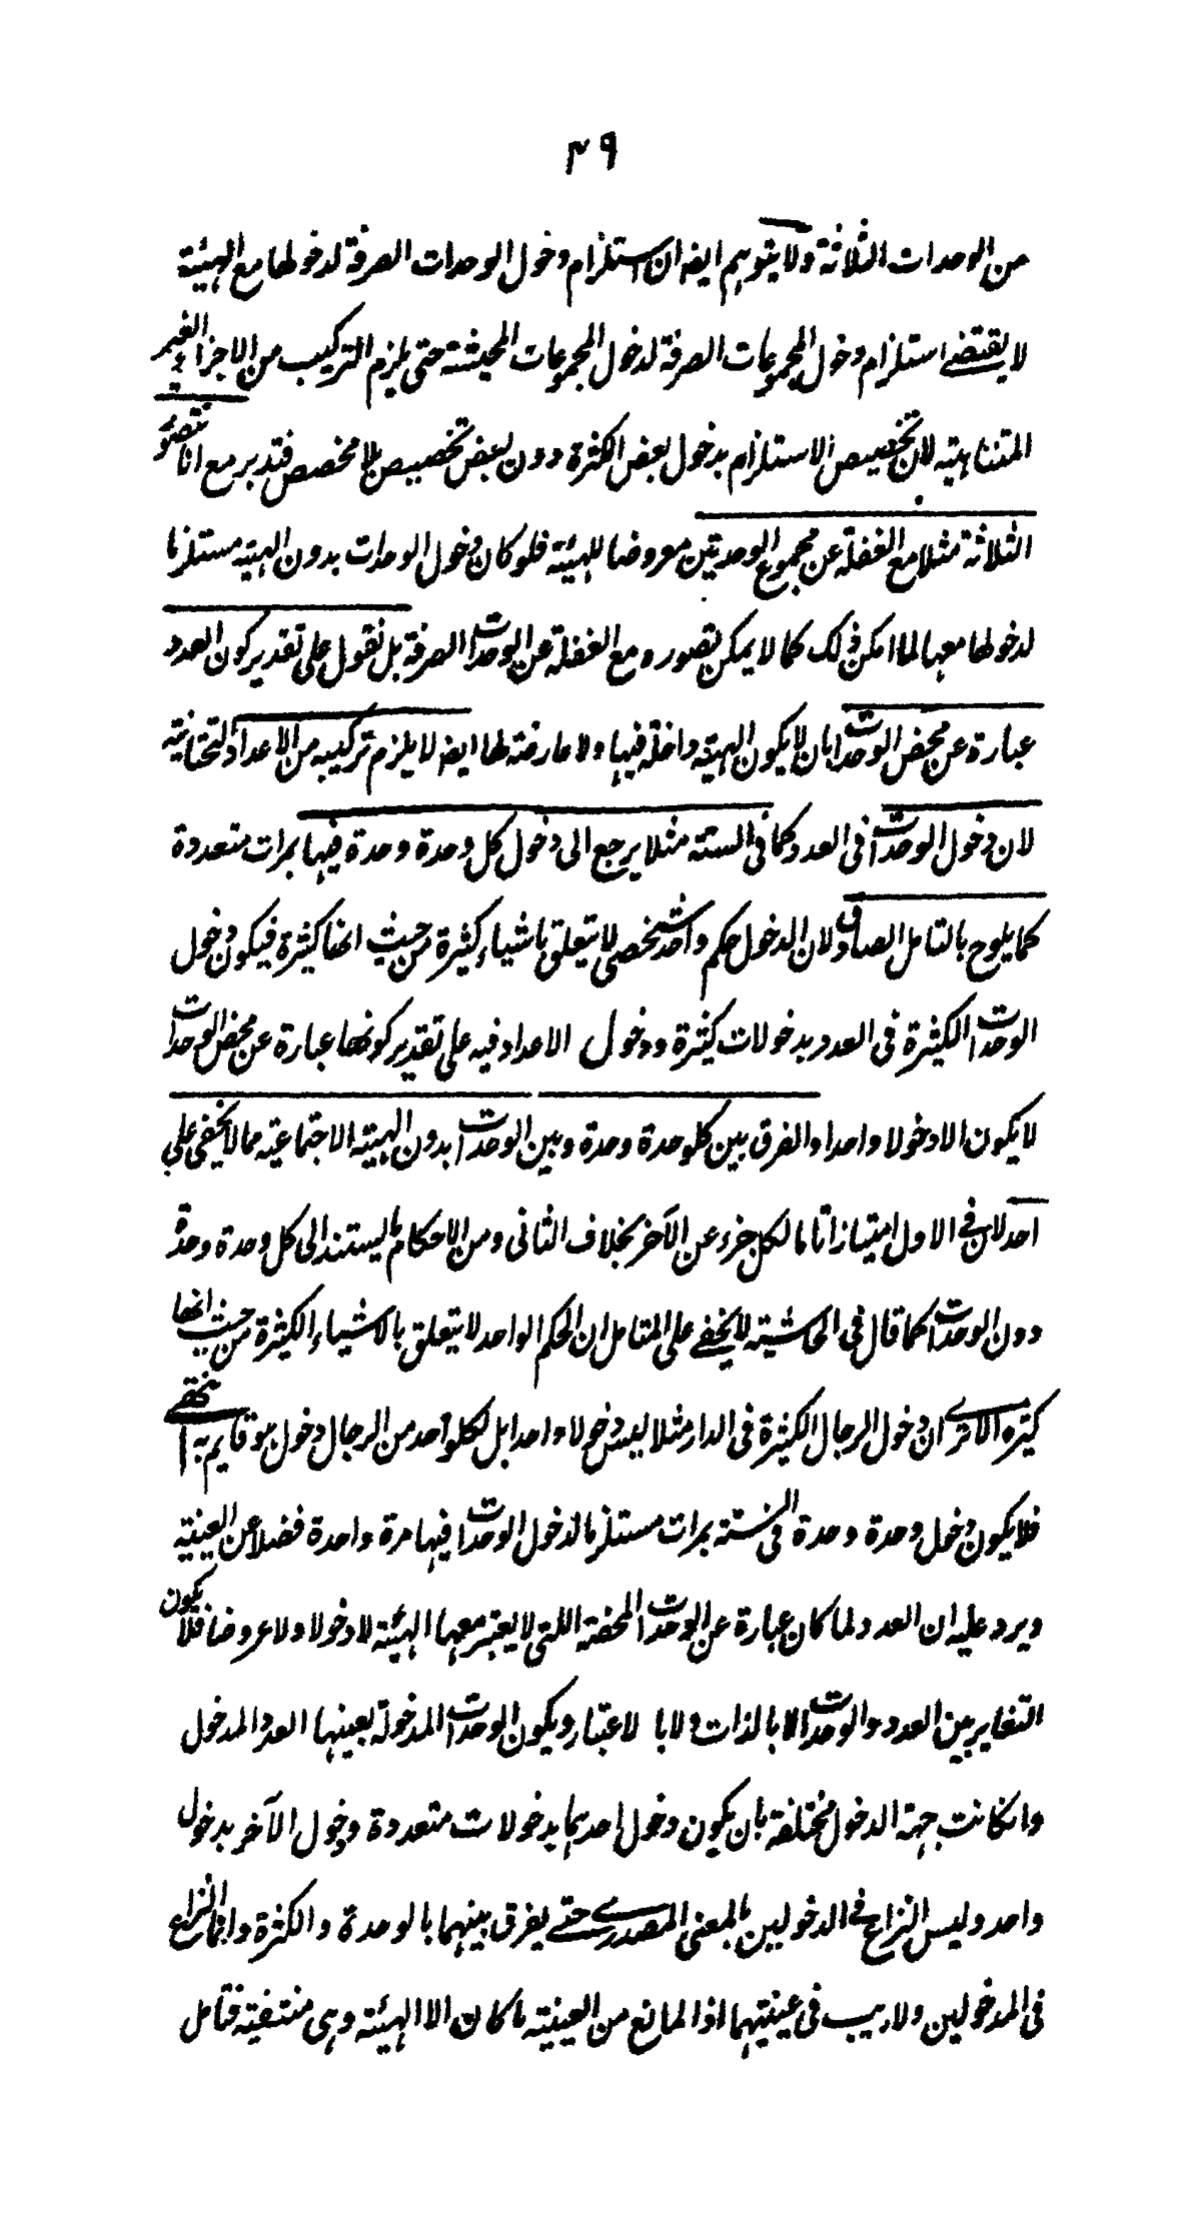 ٤٩
من الوحدات الثلاثة ولا يتوهم ايضا ان استلزام دخول الوحدات الصرفة لدخولها مع الهيئة
لا يقتضے استلزام دخول المجموعات الصرفة لدخول المجموعات المحيثة حتى يلزم التركيب من الاجزاء الغير
المتناهية لان تخصيص الاستلزام بدخول بعض الكثرة دون بعض تخصيص بلا مخصص فتدبر مع انا نتصور
الثلاثة مثلا مع الغفلة عن مجموع الوحدتين معروضا للهيئة فلو كان دخول الوحدات بدون الهيئة مستلزما
لدخولها معها لما امكن ذلك كما لا يمكن تصوره مع الغفلة عن الوحدات الصرفة بل نقول على تقدير كون العدد
عبارة عن محض الوحدات بان لا يكون الهيئة داخلة فيها ولا عارضة لها ايضا لا يلزم تركيبه من الاعداد التحتانية
لان دخول الوحدات فى العدد كما فى الستة مثلا يرجع الى دخول كل وحدة وحدة فيها بمرات متعددة
كما يلوح بالتامل الصادق ولان الدخول حكم واحد شخصى لا يتعلق باشياء كثيرة من حيث انها كثيرة فيكون دخول
الوحدات الكثيرة فى العدد بدخولات كثيرة ودخول الاعداد فيه على تقدير كونها عبارة عن محض الوحدات
لا يكون الا دخولا واحدا والفرق بين كلوحدة وحدة وبين الوحدات بدون الهيئة الاجتماعية مما لا يخفى على
احد لان فے الاول امتيازا تاما لكل جزء عن الآخر بخلاف الثانى ومن الاحكام ما يستند الى كل وحدة وحدة
دون الوحدات كما قال فى الحاشية لا يخفے على المتامل ان الحكم الواحد لا يتعلق بالاشياء الكثيرة من حيث انها
كثيرة الا ترے ان دخول الرجال الكثيرة فى الدار مثلا ليس دخولا واحدا بل لكلواحد من الرجال دخول هو قايم به انتهے
فلا يكون دخل وحدة وحدة فى الستة بمرات مستلزما لدخول الوحدات فيها مرة واحدة فضلا عن العينية
ويرد عليه ان العدد لما كان عبارة عن الوحدات المحضة اللتى لا يعتبر معها الهيئة لا دخولا ولا عروضا فلا يكون
التغاير بين العدد والوحدات الا بالذات ولا با لاعتبار ويكون الوحدات المدخولة بعينها العدد المدخول
وانكانت جهة الدخول مختلفة بان يكون دخول احدهما بدخولات متعددة ودخول الآخر بدخول
واحد وليس النزاع فے الدخولين بالمعنى المصدرے حتے يفرق بينهما بالوحدة والكثرة وانما النزاع
فى المدخولين ولا ريب فى عينيتهما اذ المانع من العينية ما كان الا الهيئة وهى منتفية فتامل